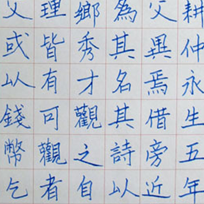 耕仲永生五年
父異焉借旁近
為其名其詩以
鄉秀才觀之自
理皆有可觀者
父或以錢幣乞